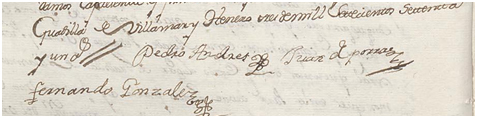 Quadrilla de Villamar y Henero tres de mill Setecientos Settenta
y uno Pedro Andres Juan d porras
fernando Gonzalez